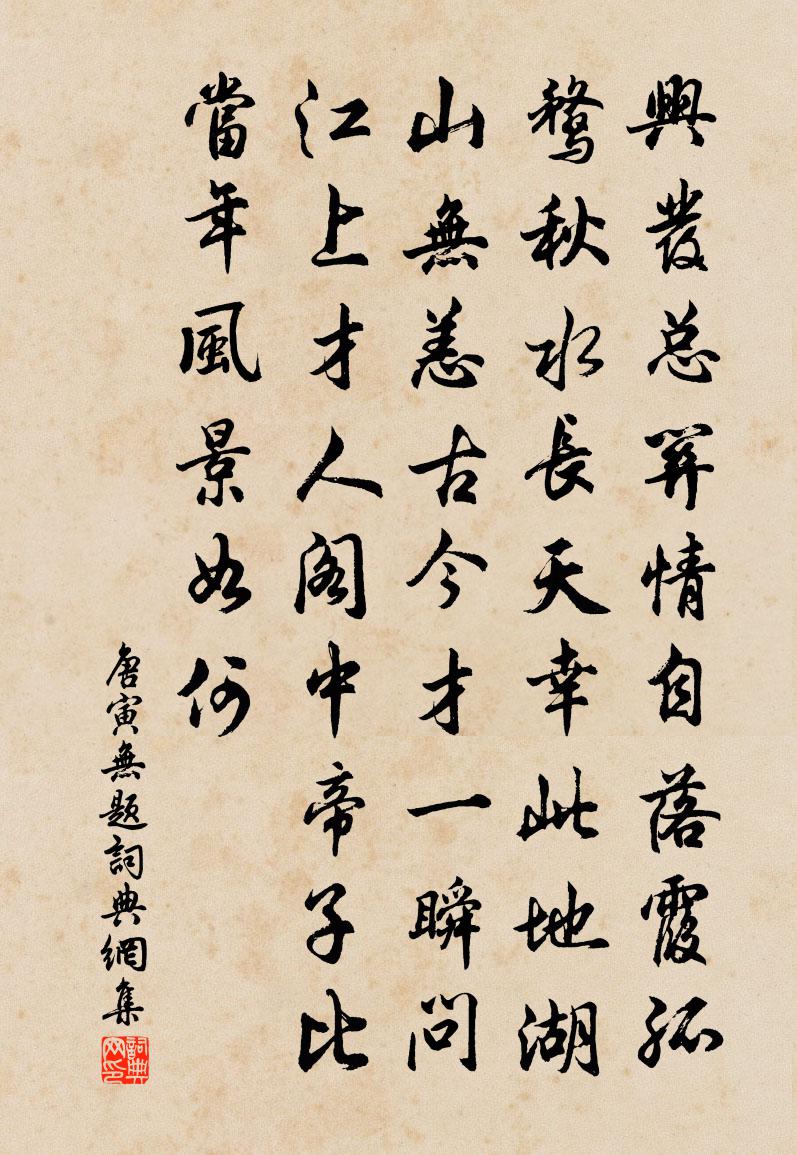 興發總關情自落霞孤
鶩秋水長天幸此地湖
山無恙古今才一瞬問
江上才人閣中帝子比
當年風景如何
唐寅無題詞典網集
詞典网印